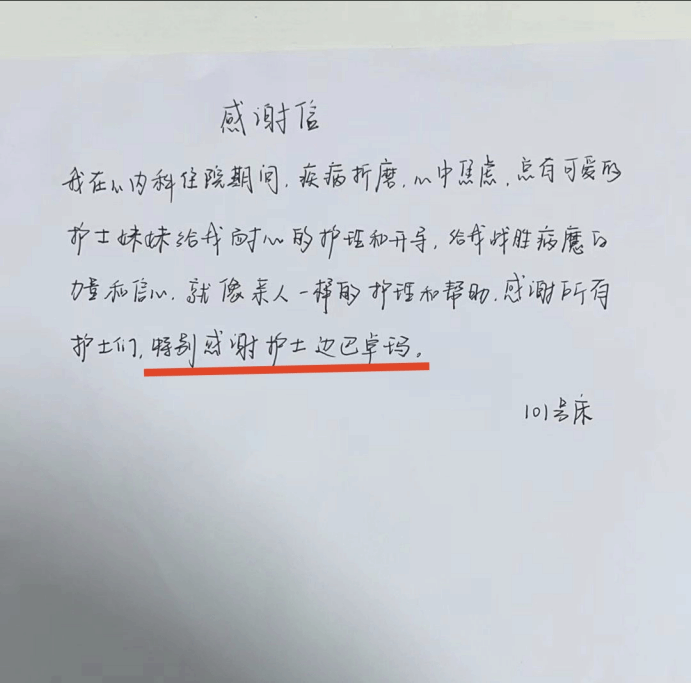 感谢信
我在心内科住院期间.疾病折磨.心中焦虑.总有可爱的
护士妹妹给我耐心的护理和开导,给我战胜病魔的
力量和信心.就像亲人一样的护理和帮助.感谢所有
护士们,特别感谢护士边巴卓玛。
101号床